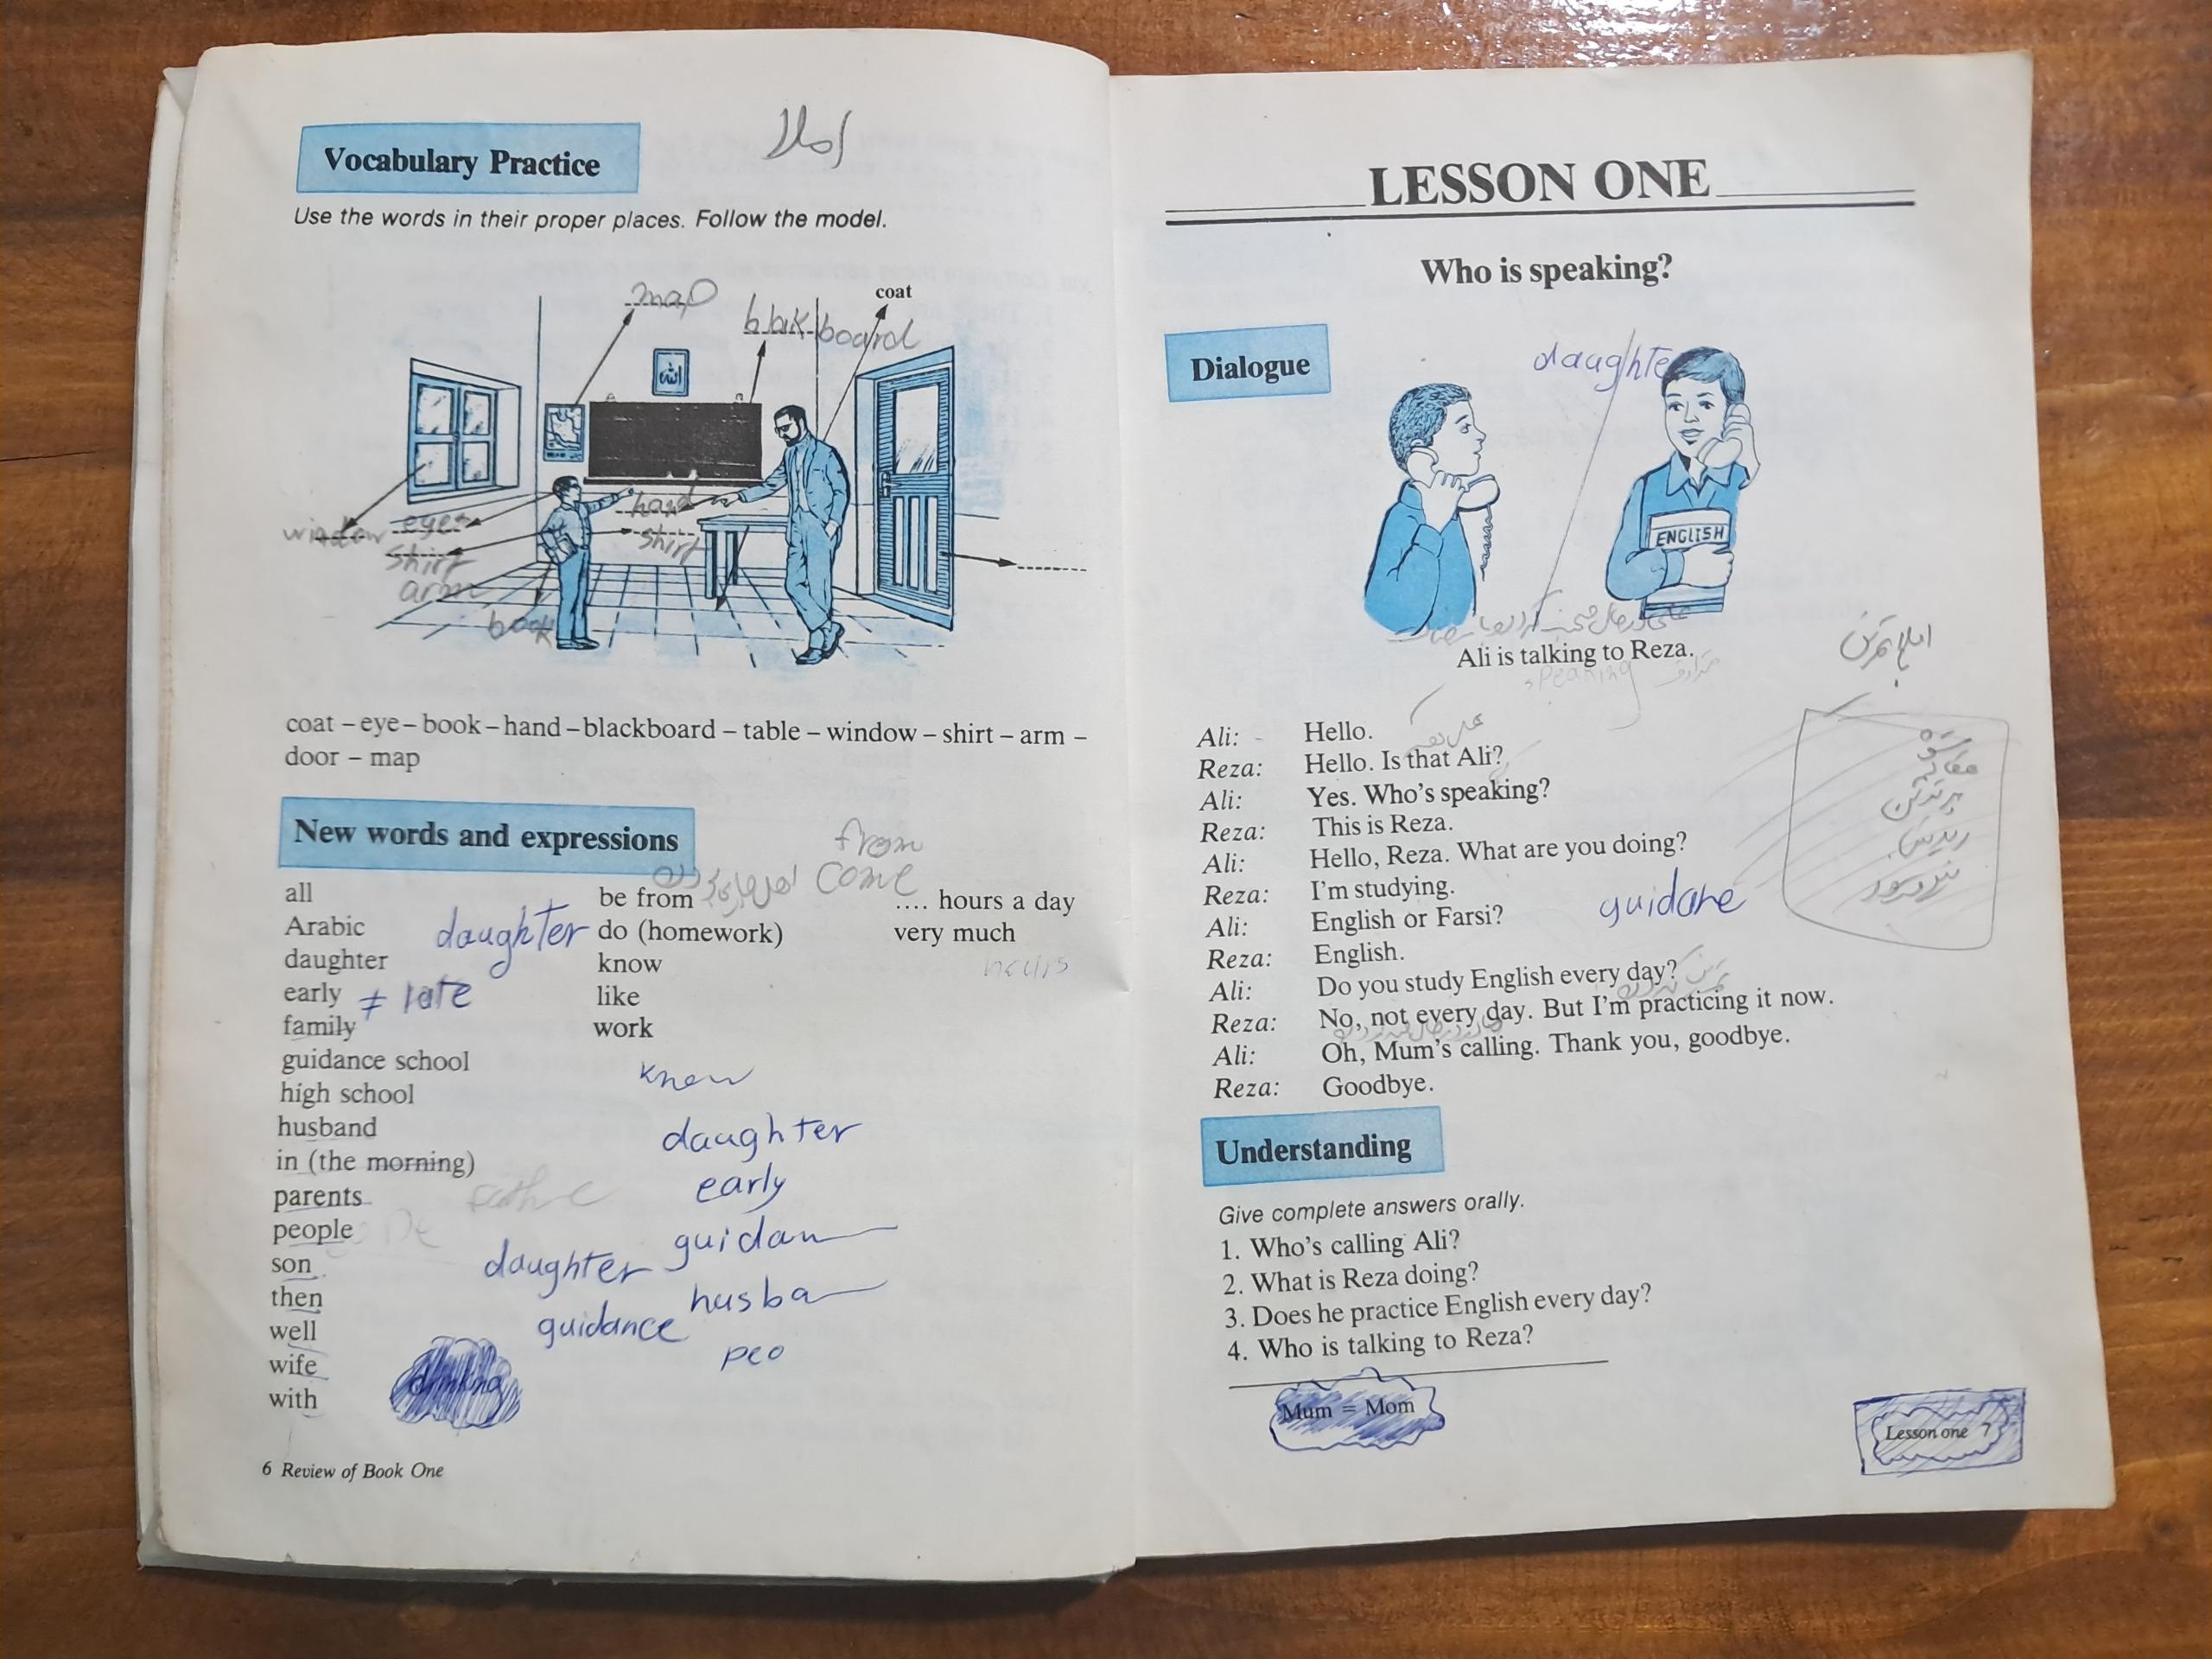 Vocabulary Practice
املا
Use the words in their proper places. Follow the model.
map
coat
blak board
الله
hand
window eye
shirt
shirt
arm
book
coat – eye – book – hand – blackboard – table – window – shirt – arm –
door – map
New words and expressions
from
come
all
Arabic
daughter
daughter
early ≠ late
family
guidance school
high school
husband
in (the morning)
parents
people
son
then
well
wife
with
be from
do (homework)
know
like
work
.... hours a day
very much
hours
know
daughter
early
guidan
daughter
husba
guidance
peo
drinking
6 Review of Book One
LESSON ONE
Who is speaking?
Dialogue
daughter
ENGLISH
Ali is talking to Reza.
speaking
Ali: Hello.
Reza: Hello. Is that Ali?
Ali: Yes. Who's speaking?
Reza: This is Reza.
Ali: Hello, Reza. What are you doing?
Reza: I'm studying.
Ali: English or Farsi?
guidane
Reza: English.
Ali: Do you study English every day?
Reza: No, not every day. But I'm practicing it now.
Ali: Oh, Mum's calling. Thank you, goodbye.
Reza: Goodbye.
Understanding
Give complete answers orally.
1. Who's calling Ali?
2. What is Reza doing?
3. Does he practice English every day?
4. Who is talking to Reza?
Mum = Mom
Lesson one 7